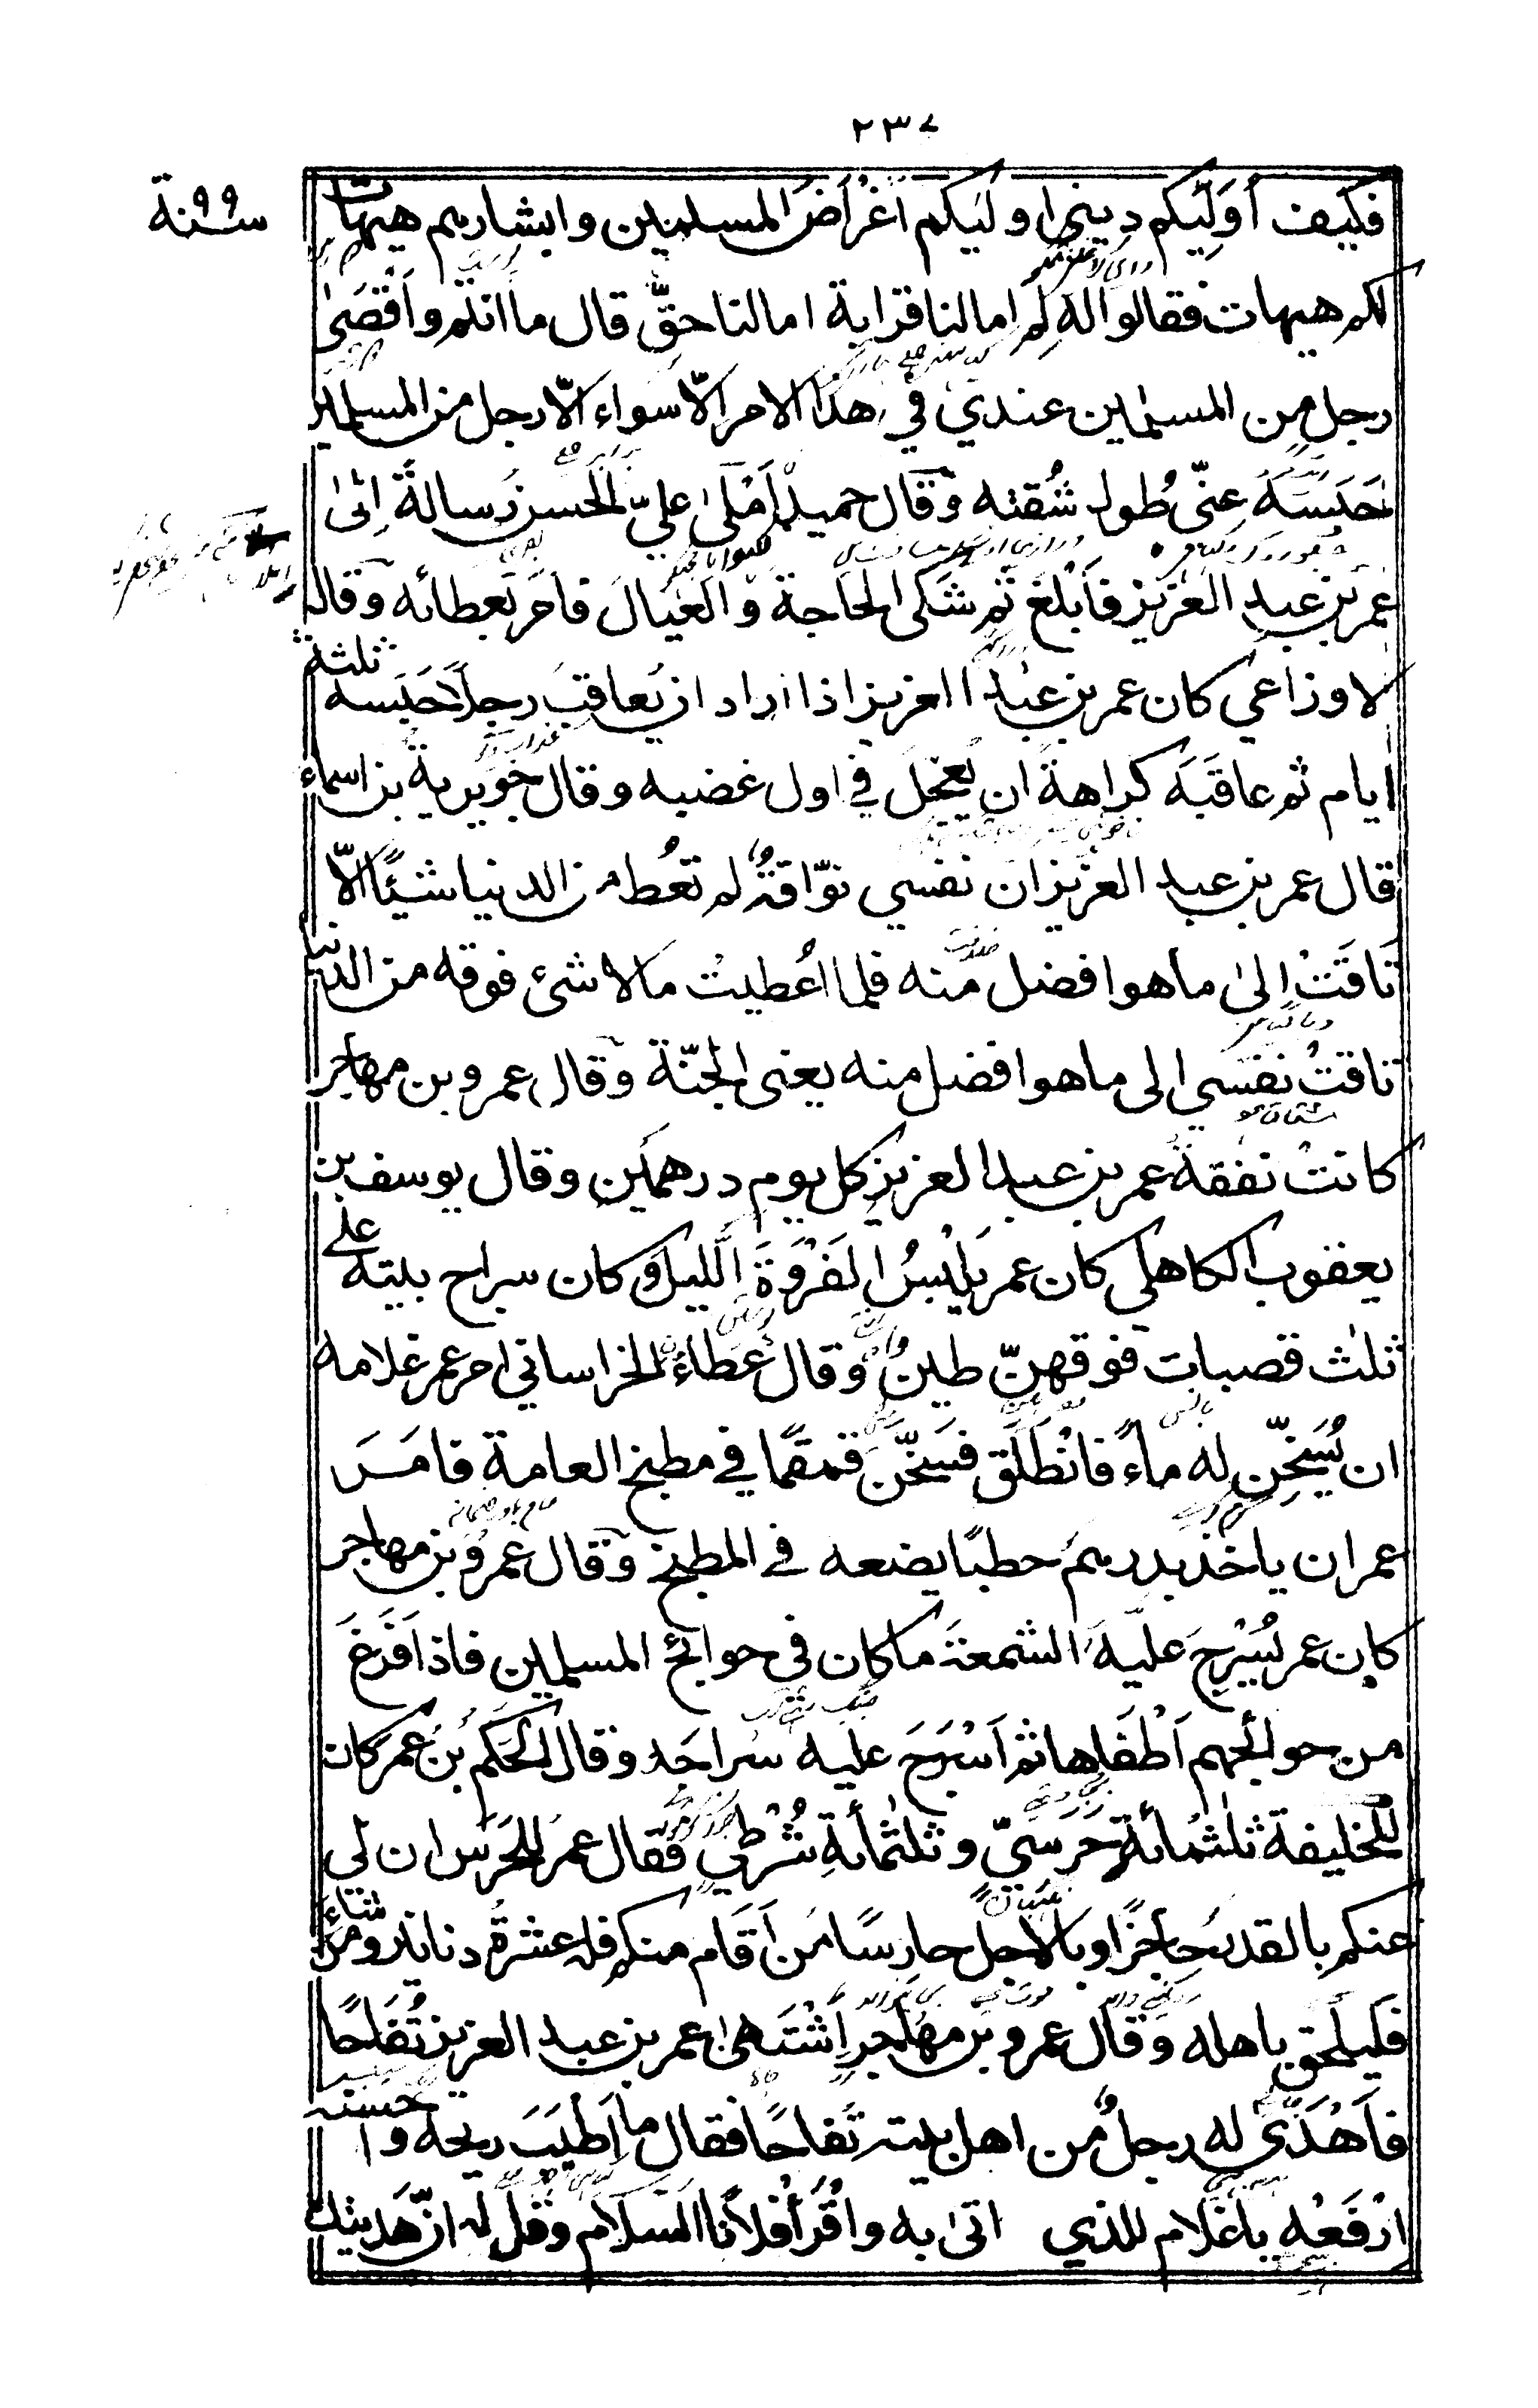 ٢٣٧
سنة ٩٩
فكيف أُوَلِّيكم ديني اوليكم اَعْرَاضَ المسلمين وابشارهم هيهات
لكم هيهات فقالوا له لِمَ اما لنا قرابة اما لنا حقّ قال ما انتم واَقْصَى
رجل من المسلمين عندي في هذا الامر الّا سواء الّا رجل من المسلمين
حَبَسَهُ عنّي طُولُ شُقته وقال حميد اَمْلىٰ عليّ الحسن رسالةً اِلىٰ
عمر بن عبد العزيز فاَبْلَغَ ثم شكى الحاجة والعيالَ فاَمَرَ بعطائه وقال
الاوزاعي كان عمر بن عبد العزيز اذا اراد ان يعاقب رجلًا حَبَسه ثلثة
ايام ثم عاقَبَه كراهةَ ان يَعْجَلَ في اول غضبه وقال جويرية بن اسماء
قال عمر بن عبد العزيز ان نفسي توّاقةٌ لم تعُط من الدنيا شيئًا الّا
تَاقَتْ اِلىٰ ما هو افضل منه فلما اُعطيتْ ما لا شئ فوقه من الدنيا
تاقتْ نفسي الى ما هو افضل منه يعنى الجنّة وقال عمرو بن مهاجر
كانتْ نفقةُ عمر بن عبد العزيز كل يوم درهمين وقال يوسف بن
يعقوب الكاهلي كان عمر يَلْبَسُ الفَرْوَةَ الليل وكان سراج بيته على
ثلٰث قصبات فوقهنّ طينٌ وقال عطاءُ الخراساني امر عمر غلامه
ان يُسَخِّن له ماءً فانْطَلَق فسَخَّن قمقمًا في مطبخ العامة فامَرَ
عمر ان ياخذ بدرهم حطبًا يضعه في المطبخ وقال عمرو بن مهاجر
كان عمر يُسْرِجَ عليه الشمعةَ ما كان في حوائج المسلمين فاذا فَرَغَ
من حوائجهم اَطْفَاها ثم اَسْرَجَ عليه سراجَه وقال الحَكَم بنُ عمر كان
للخليفة ثلٰثمائة حَرَسيّ وثلٰثمائةِ شُرْطيّ فقال عمر للحَرَس ان لي
عنكم بالقدر حاجزًا وبالاجل حارسًا مَن اَقَام منكم فله عشرةُ دنانير ومن شاء
فليلحق باهله وقال عمرو بن مهاجر اِشْتَهىٰ عمر بن عبد العزيز تُفَاحًا
فاَهْدَىٰ له رجلٌ من اهل بيته تفاحًا فقال ما اَطْيَبَ ريحه واحسنه
ارْفَعْه يا غلام للذي اتىٰ به واقْرَأْ فلانًا السلام وقل له انّ هَديتك